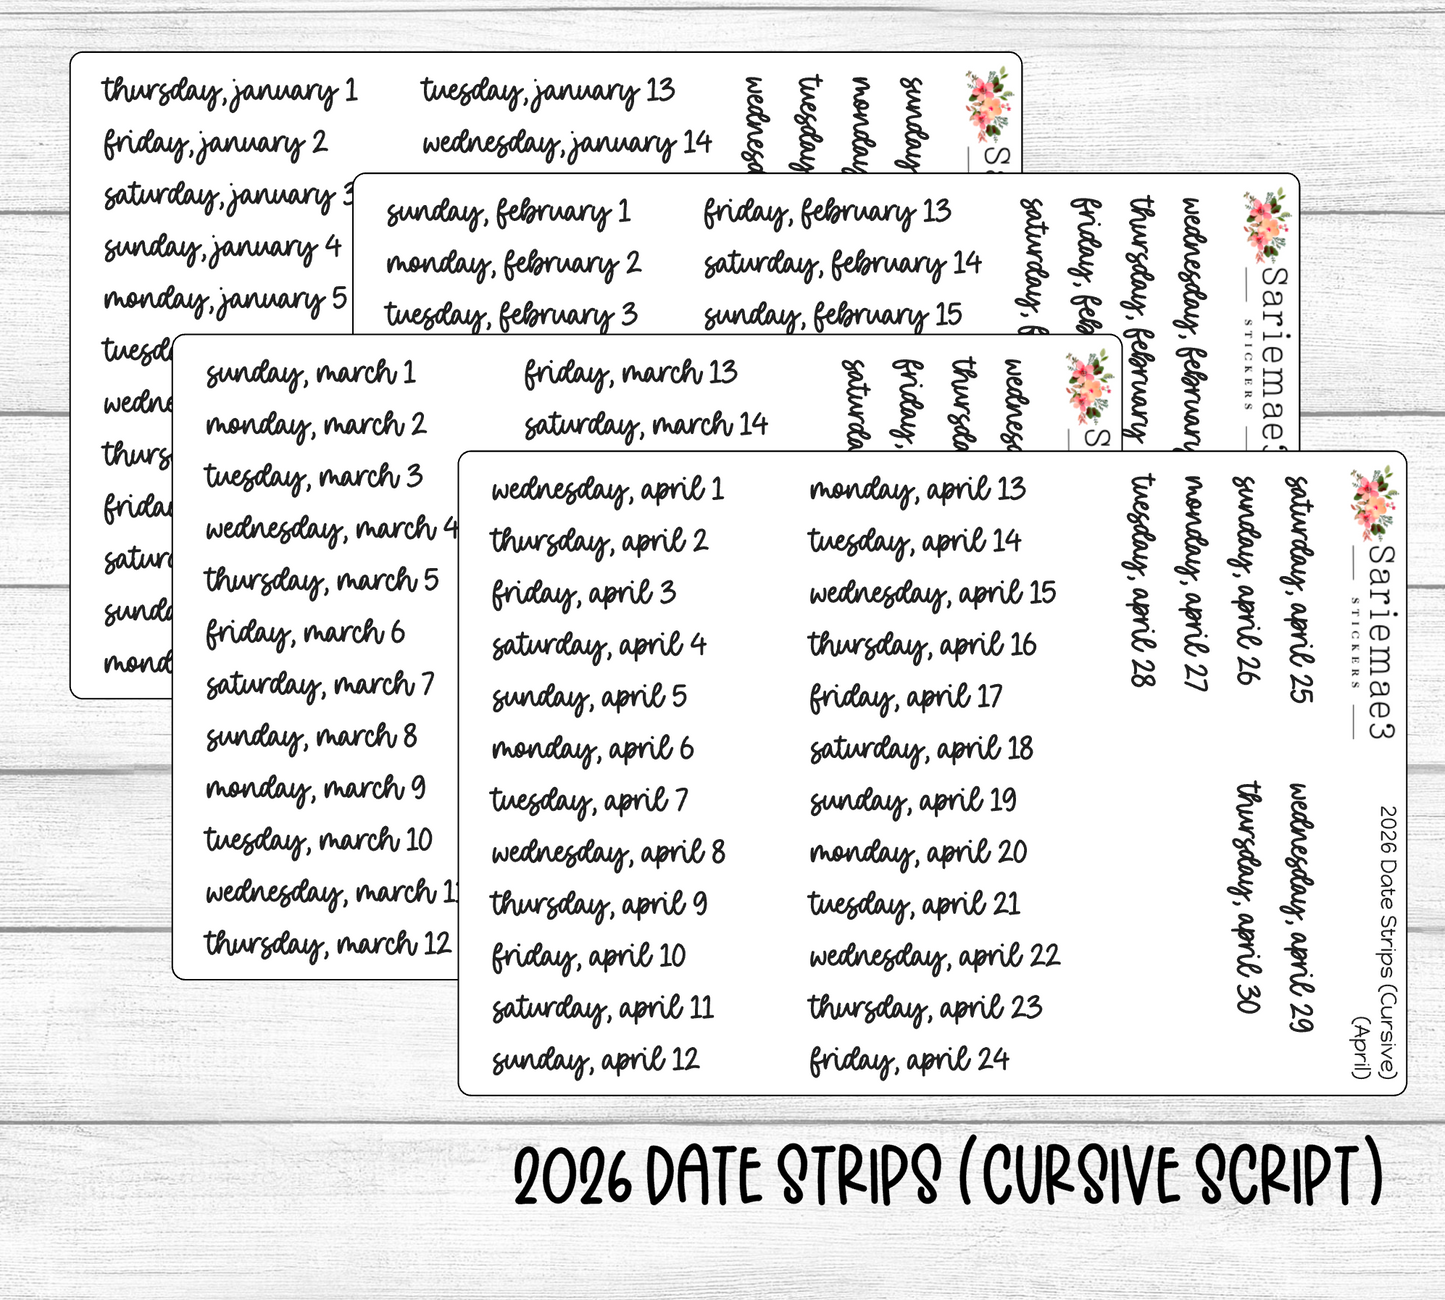 thursday, january 1
friday, january 2
saturday, january
sunday, january 4
monday, january 5
tuesday, january 13
wednesday, january 14
sunday
monday
tuesday
sunday, february 1
monday, february 2
tuesday, february 3
friday, february 13
saturday, february 14
sunday, february 15
wednesday, february
thursday, february
friday, feb
saturday,
Sariemae3
STICKERS
sunday, march 1
monday, march 2
tuesday, march 3
wednesday, march 4
thursday, march 5
friday, march 6
saturday, march 7
sunday, march 8
monday, march 9
tuesday, march 10
wednesday, march 11
thursday, march 12
friday, march 13
saturday, march 14
friday,
wednesday, april 1
thursday, april 2
friday, april 3
saturday, april 4
sunday, april 5
monday, april 6
tuesday, april 7
wednesday, april 8
thursday, april 9
friday, april 10
saturday, april 11
sunday, april 12
monday, april 13
tuesday, april 14
wednesday, april 15
thursday, april 16
friday, april 17
saturday, april 18
sunday, april 19
monday, april 20
tuesday, april 21
wednesday, april 22
thursday, april 23
friday, april 24
saturday, april 25
sunday, april 26
monday, april 27
tuesday, april 28
wednesday, april 29
thursday, april 30
Sariemae3
STICKERS
2026 Date Strips (Cursive)
(April)
2026 DATE STRIPS (CURSIVE SCRIPT)